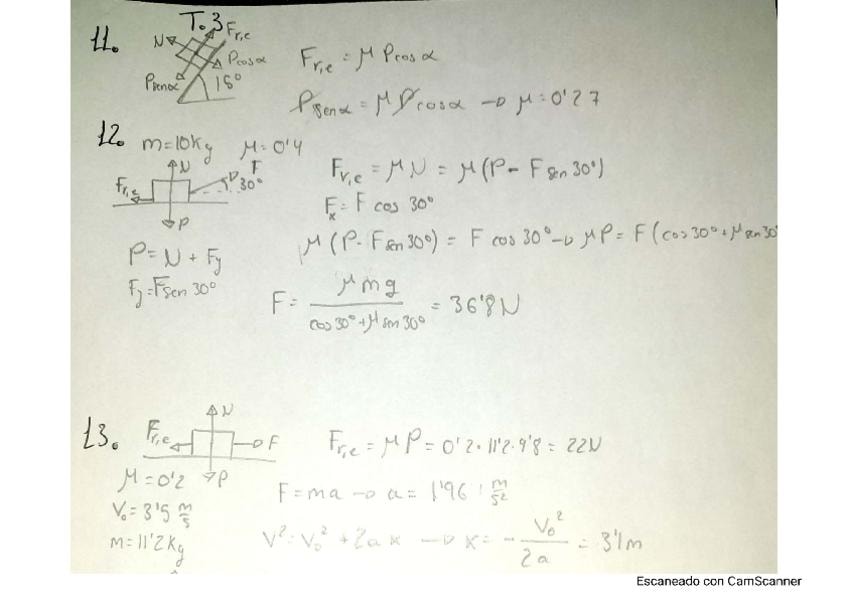 T.3
11.
N
Fr,e
Pcosα
Psenα
15°
Fr,e = μ Pcos α
Psenα = μ Pcosα → μ = 0'27
12. m=10kg μ=0'4
N
F
30°
Fr,e
P
Fr,e = μ N = μ (P - F sen 30°)
Fx = F cos 30°
μ (P - F sen 30°) = F cos 30° → μP = F (cos 30° + μ sen 30°
P = N + Fy
Fy = F sen 30°
F = μ m g / cos 30° + μ sen 30° = 36'8 N
13.
N
Fr,e
F
P
Fr,e = μ P = 0'2 · 11'2 · 9'8 = 22N
μ = 0'2
F = ma → a = 1'96 m/s²
V₀ = 3'5 m/s
m = 11'2 kg
V² = V₀² + 2a x → x = - V₀² / 2a = 3'1m
Escaneado con CamScanner